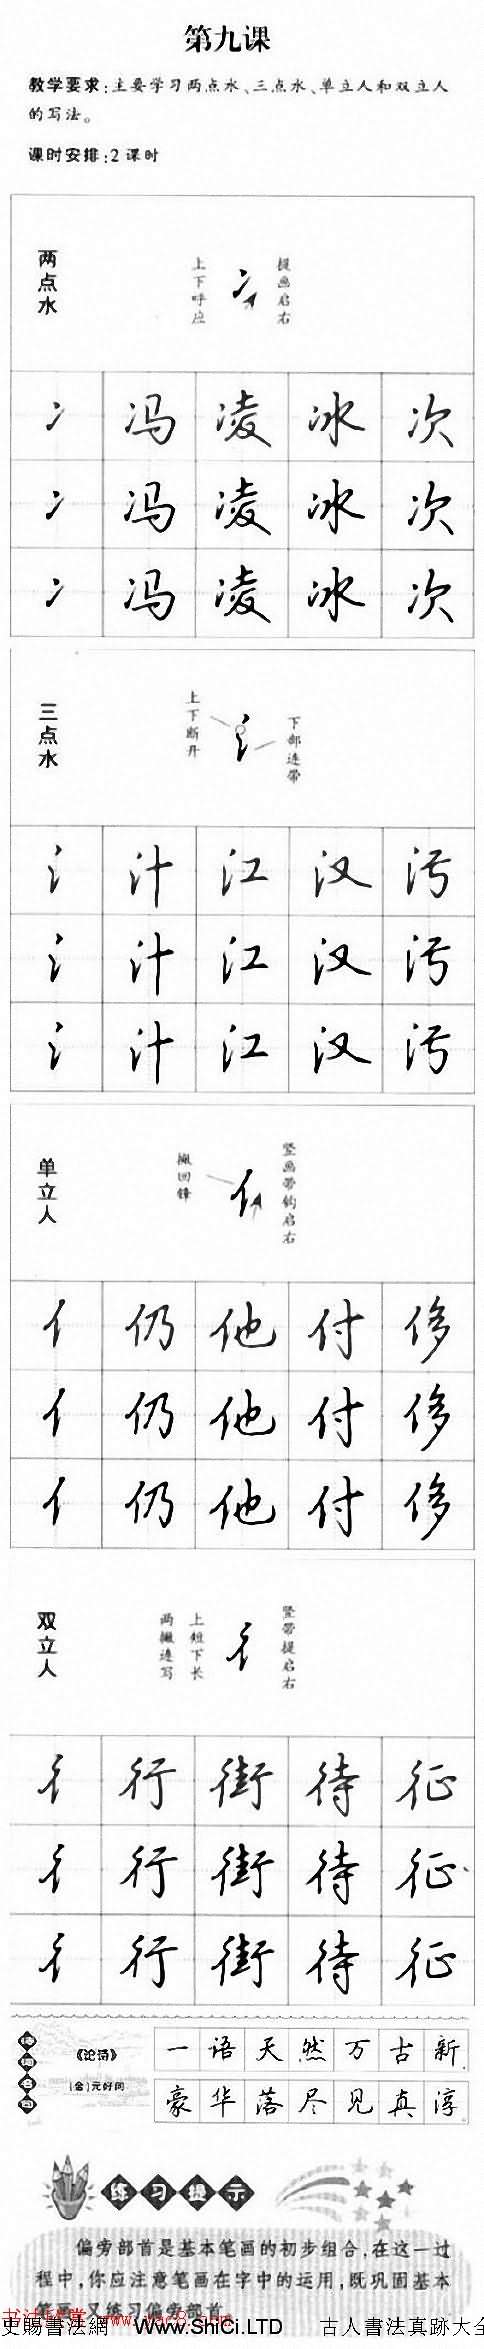 第九课
教学要求:主要学习两点水、三点水、单立人和双立人
的写法。
课时安排:2课时
两点水
上下呼应
提画启右
冫 冯 凌 冰 次
冫 冯 凌 冰 次
冫 冯 凌 冰 次
三点水
上下断开
下部连带
氵 汁 江 汉 污
氵 汁 江 汉 污
氵 汁 江 汉 污
单立人
撇回锋
竖画带钩启右
亻 仍 他 付 侈
亻 仍 他 付 侈
亻 仍 他 付 侈
双立人
两撇连写
上短下长
竖带提启右
彳 行 街 待 征
彳 行 街 待 征
彳 行 街 待 征
诗词名句
《论诗》
(金)元好问
一语天然万古新
豪华落尽见真淳
练习提示
偏旁部首是基本笔画的初步组合,在这一过
程中,你应注意笔画在字中的运用,既巩固基本
笔画,又练习偏旁部首
史賜書法網 WWW.ShiCi.LTD 古人書法真跡大全